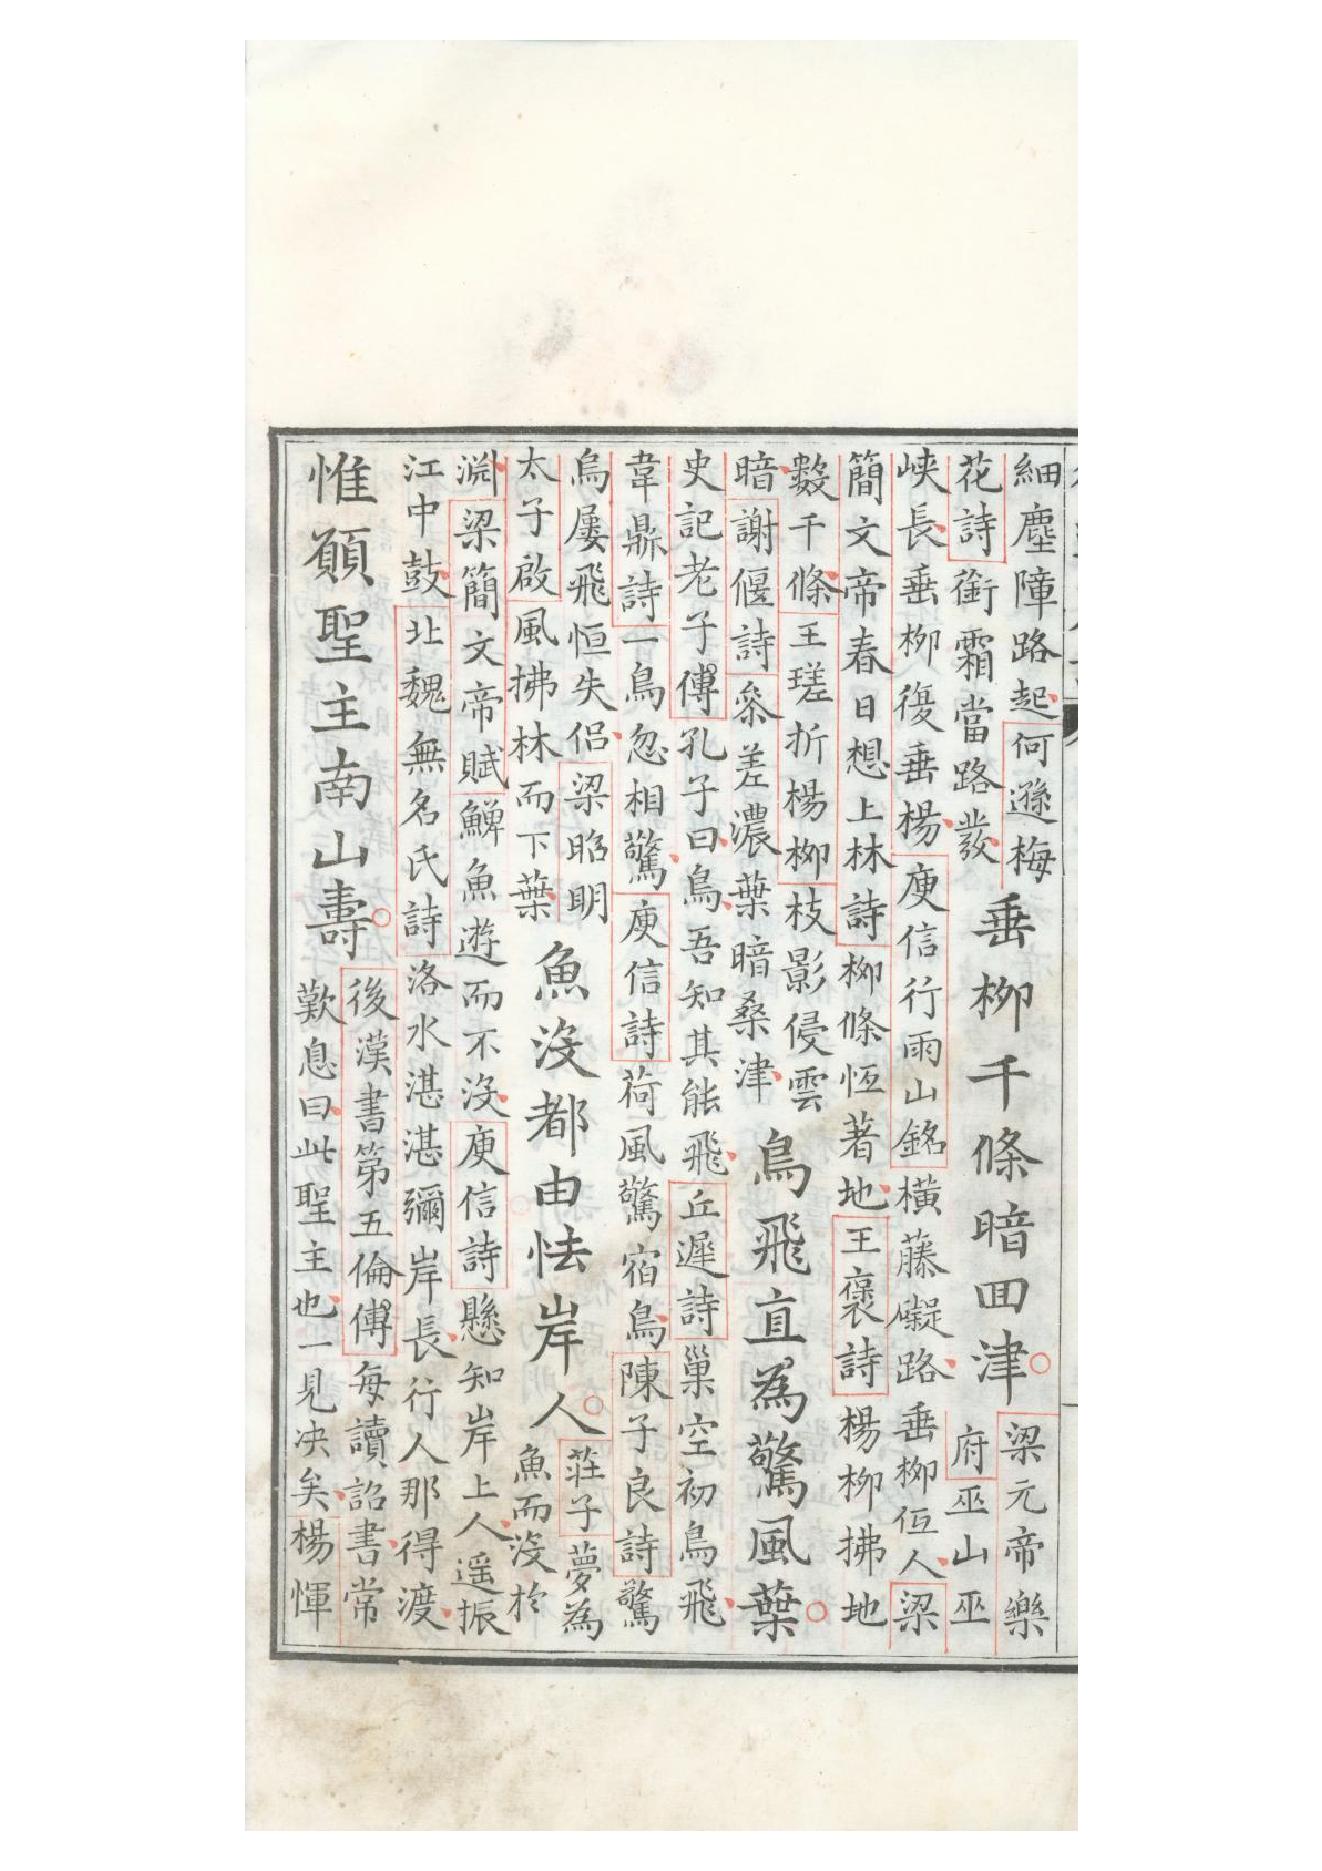 細塵障路起何遜梅
花詩銜霜當路發
垂柳千條暗囬津
梁元帝樂
府巫山巫
峽長垂柳復垂楊庾信行雨山銘橫藤礙路垂柳低人梁
簡文帝春日想上林詩柳條恆著地王褒詩楊柳拂地
數千條王瑳折楊柳枝影侵雲
暗謝偃詩參差濃葉暗桑津
鳥飛直為驚風葉
史記老子傳孔子曰鳥吾知其能飛丘遲詩巢空初鳥飛
韋鼎詩一鳥忽相驚庾信詩荷風驚宿鳥陳子良詩驚
烏屢飛恒失侶梁昭明
太子啟風拂林而下葉
魚沒都由怯岸人
莊子夢為
魚而沒於
淵梁簡文帝賦鱓魚遊而不沒庾信詩懸知岸上人遥振
江中鼓北魏無名氏詩洛水湛湛彌岸長行人那得渡
惟願聖主南山壽
後漢書第五倫傳每讀詔書常
歎息曰此聖主也一見决矣楊惲